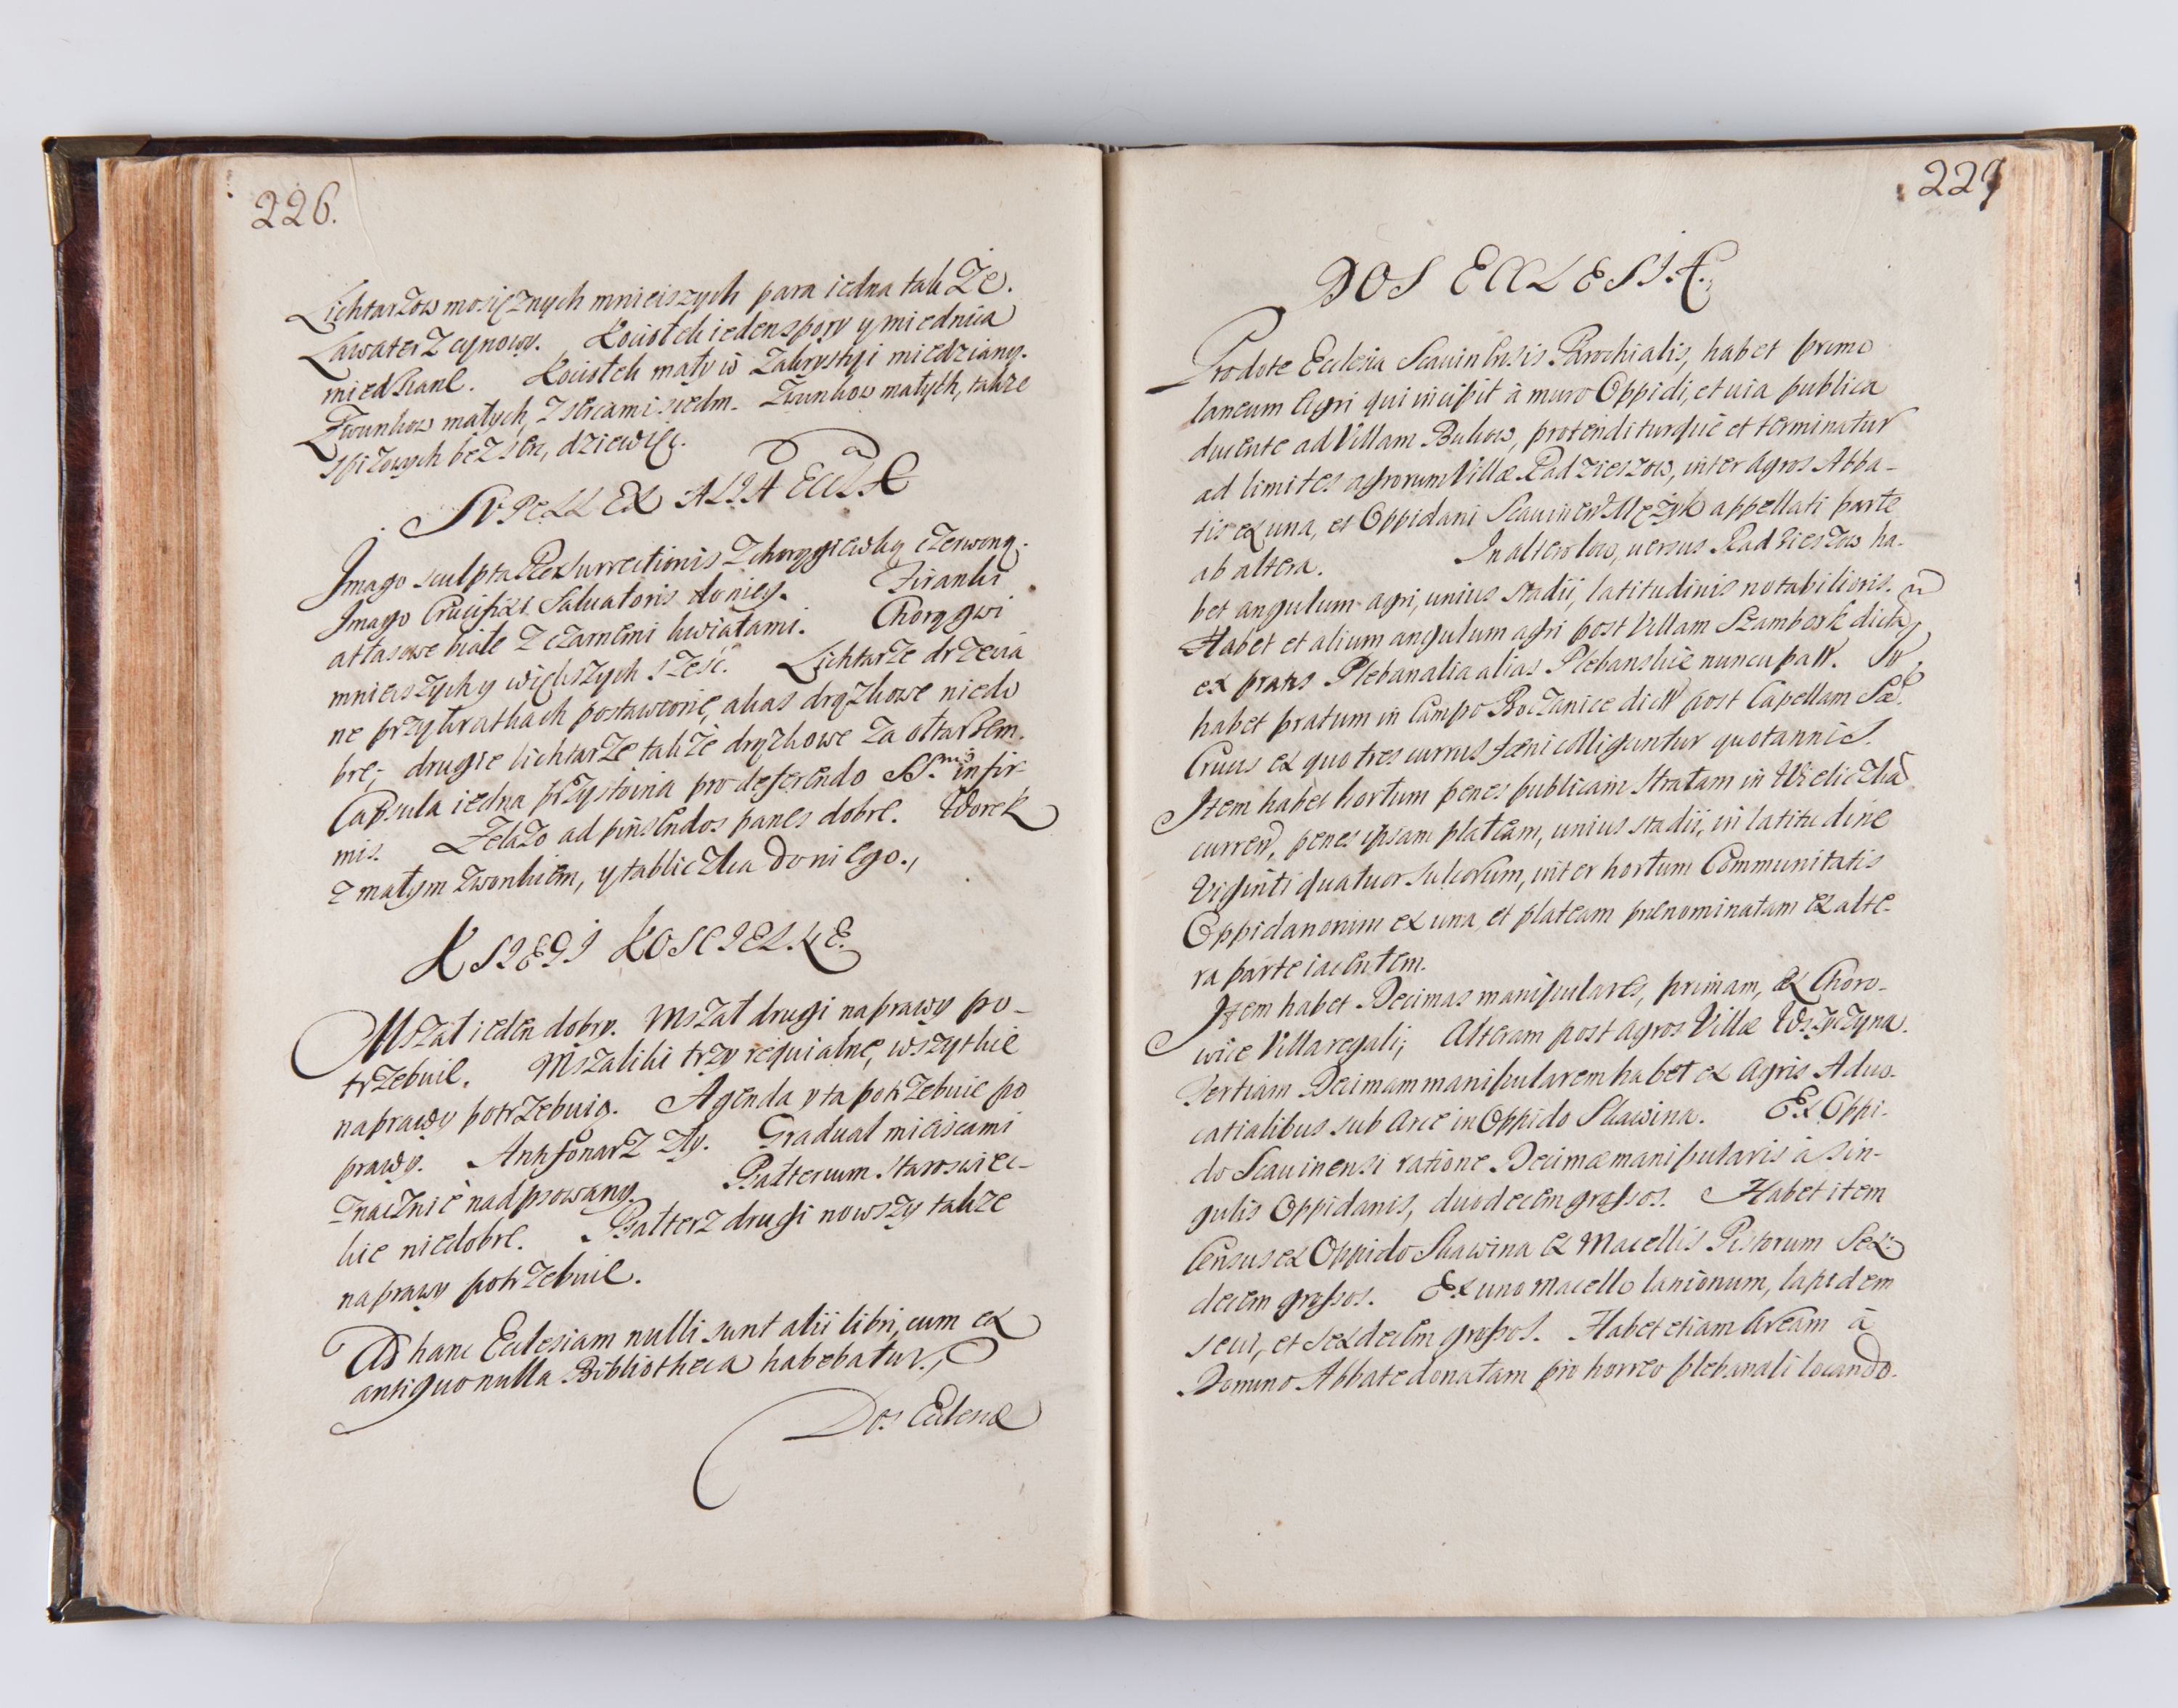 226.
Lichtarzow mosiężnych mnieiszych para iedna także.
Lawaterz cynowy. Kociołek ieden spory y miednica
miedziane. Kociołek mały w Zakrystyi miedziany.
Zwonkow małych, z sercami siedm. Zwonkow małych, także
spizowych bez serc, dziewięć.
SUPELLEX ALIA ECCLÆ
Imago sculpta Resurrectionis z chorągiewką czerwoną.
Imago Crucifixi Saluatoris do niey. Firanki
atłasowe białe z czarnemi kwiatami. Chorągwi
mnieiszych y większych sześć. Lichtarze drzewia
ne przy kratkach postawione, alias drążkowe niedo
bre; drugie lichtarze także drążkowe za ołtarzem.
Capsula iedna przystoina pro deferendo SS.mo infir-
mis. Zelazo ad pinsendos panes dobre. Worek
z małym zwonkiem, y tabliczka do niego.,
KSIĘGI KOSCIELNE.
Mszał ieden dobry. Mszał drugi naprawy po-
trzebuie. Mszaliki trzy requialne, wszytkie
naprawy potrzebuią. Agenda y ta potrzebuie po
prawy. Antyfonarz zły. Graduał mieiscami
znacznie nadpsowany. Psalterium staroswiec-
kie niedobre. Psałterz drugi nowszy także
naprawy potrzebuie.
Ad hanc Ecclesiam nulli sunt alii libri, cum ex
antiquo nulla Bibliotheca habebatur.,
Dos Ecclesiæ
227
DOS ECCLESIÆ.,
Pro dote Ecclesia Scauinensis Parochialis, habet primo
laneum Agri qui incipit à muro Oppidi, et uia publica
ducente ad Villam Bukow, protenditurque et terminatur
ad limites agrorum Villæ Radzieszow, inter Agros Abba-
tis ex una, et Oppidani Scauinen Mężyk appellati parte
ab altera. In altero loco, uersus Radzieszow ha-
bet angulum agri, unius stadii, latitudinis notabilioris.
Habet et alium angulum agri post Villam Szambork dicta
ex pratis Plebanalia alias Plebanskie nuncupatt.
habet pratum in Campo Roczanice dictt post Capellam Sæ
Crucis ex quo tres currus fæni colliguntur quotannis.
Item habet hortum penes publicam stratam in Wieliczka
curren, penes ipsam plateam, unius stadii, in latitudine
Viginti quatuor sulcorum, inter hortum Communitatis
Oppidanorum ex una, et plateam prænominatam ex alte-
ra parte iacentem.
Item habet Decimas manipulares, primam, ex Choro-
wice Villa regali; Alteram post agros Villæ Wszyczyna.
Tertiam Decimam manipularem habet ex Agris Aduo-
catialibus sub Arce in Oppido Skawina. Ex Oppi-
do Scauinensi ratione Decimæ manipularis à sin-
gulis Oppidanis, duodecem grossos. Habet item
Census ex Oppido Skawina ex Macellis Pistorum sex-
decem grossos. Ex uno macello lanionum, lapidem
seui, et sexdecem grossos. Habet etiam Aream à
Domino Abbate donatam pro horreo plebanali locando.